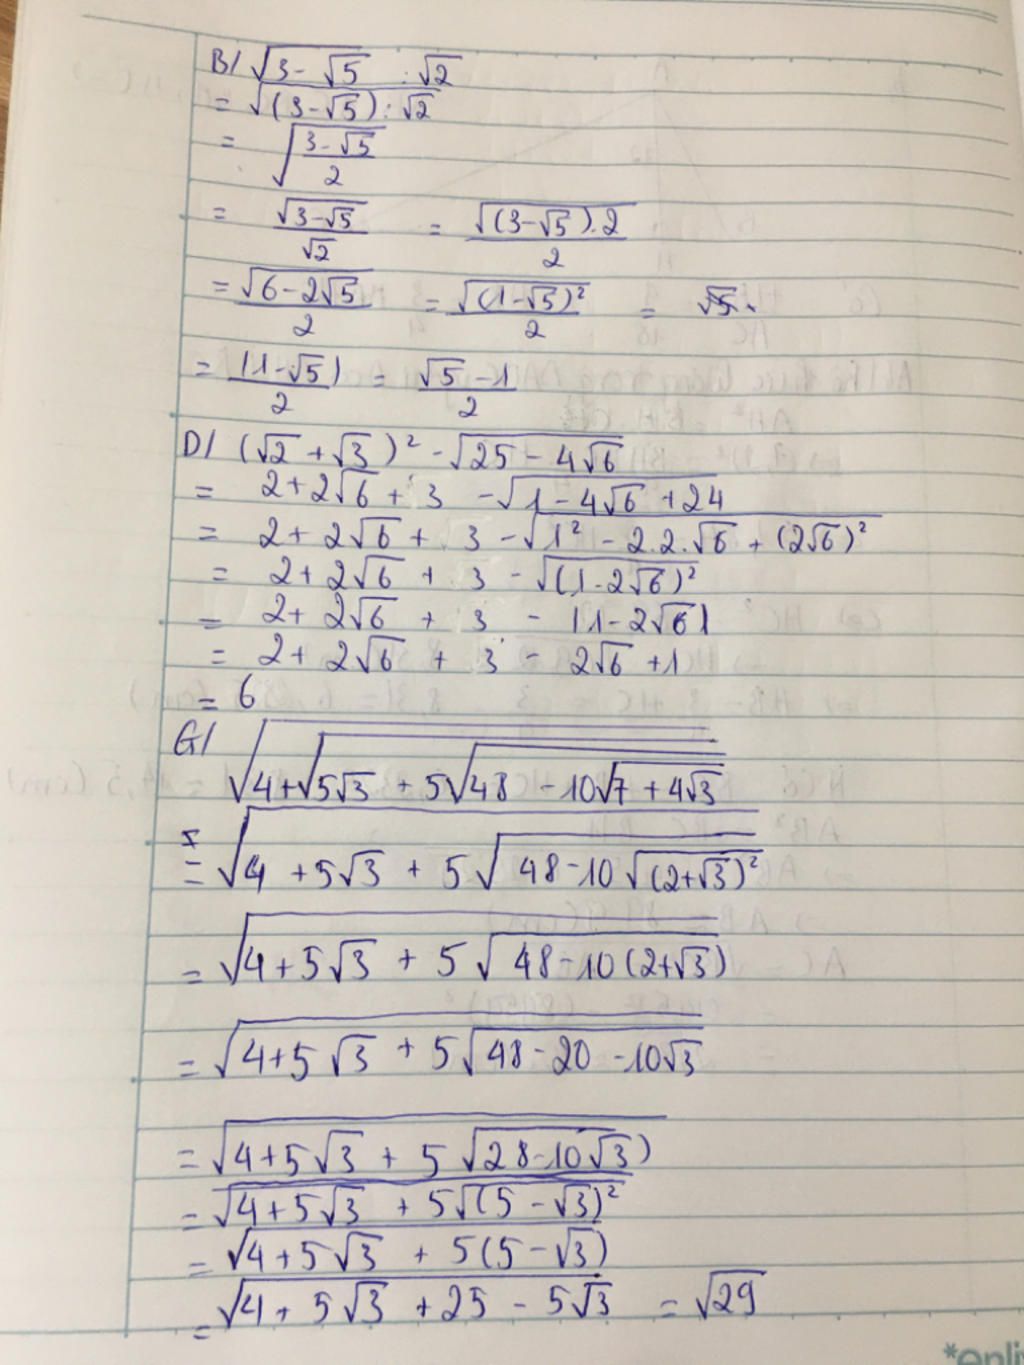 B/ √(3-√5) : √2
= √((3-√5) : √2)
= √((3-√5)/2)
= √(3-√5)/√2 = √((3-√5).2)/2
= √(6-2√5)/2 = √((1-√5)²)/2 =
= |1-√5|/2 = (√5-1)/2
D/ (√2+√3)² - √(25-4√6)
= 2+2√6+3 - √(1-4√6+24)
= 2+2√6+3 - √(1²-2.2.√6+(2√6)²)
= 2+2√6+3 - √((1-2√6)²)
= 2+2√6+3 - |1-2√6|
= 2+2√6+3 - 2√6+1
= 6
G/
√(4+√(5√3+5√(48-10√(7+4√3))))
= √(4+5√3+5√(48-10√((2+√3)²)))
= √(4+5√3+5√(48-10(2+√3)))
= √(4+5√3+5√(48-20-10√3))
= √(4+5√3+5√(28-10√3))
= √(4+5√3+5√((5-√3)²))
= √(4+5√3+5(5-√3))
= √(4+5√3+25-5√3) = √29